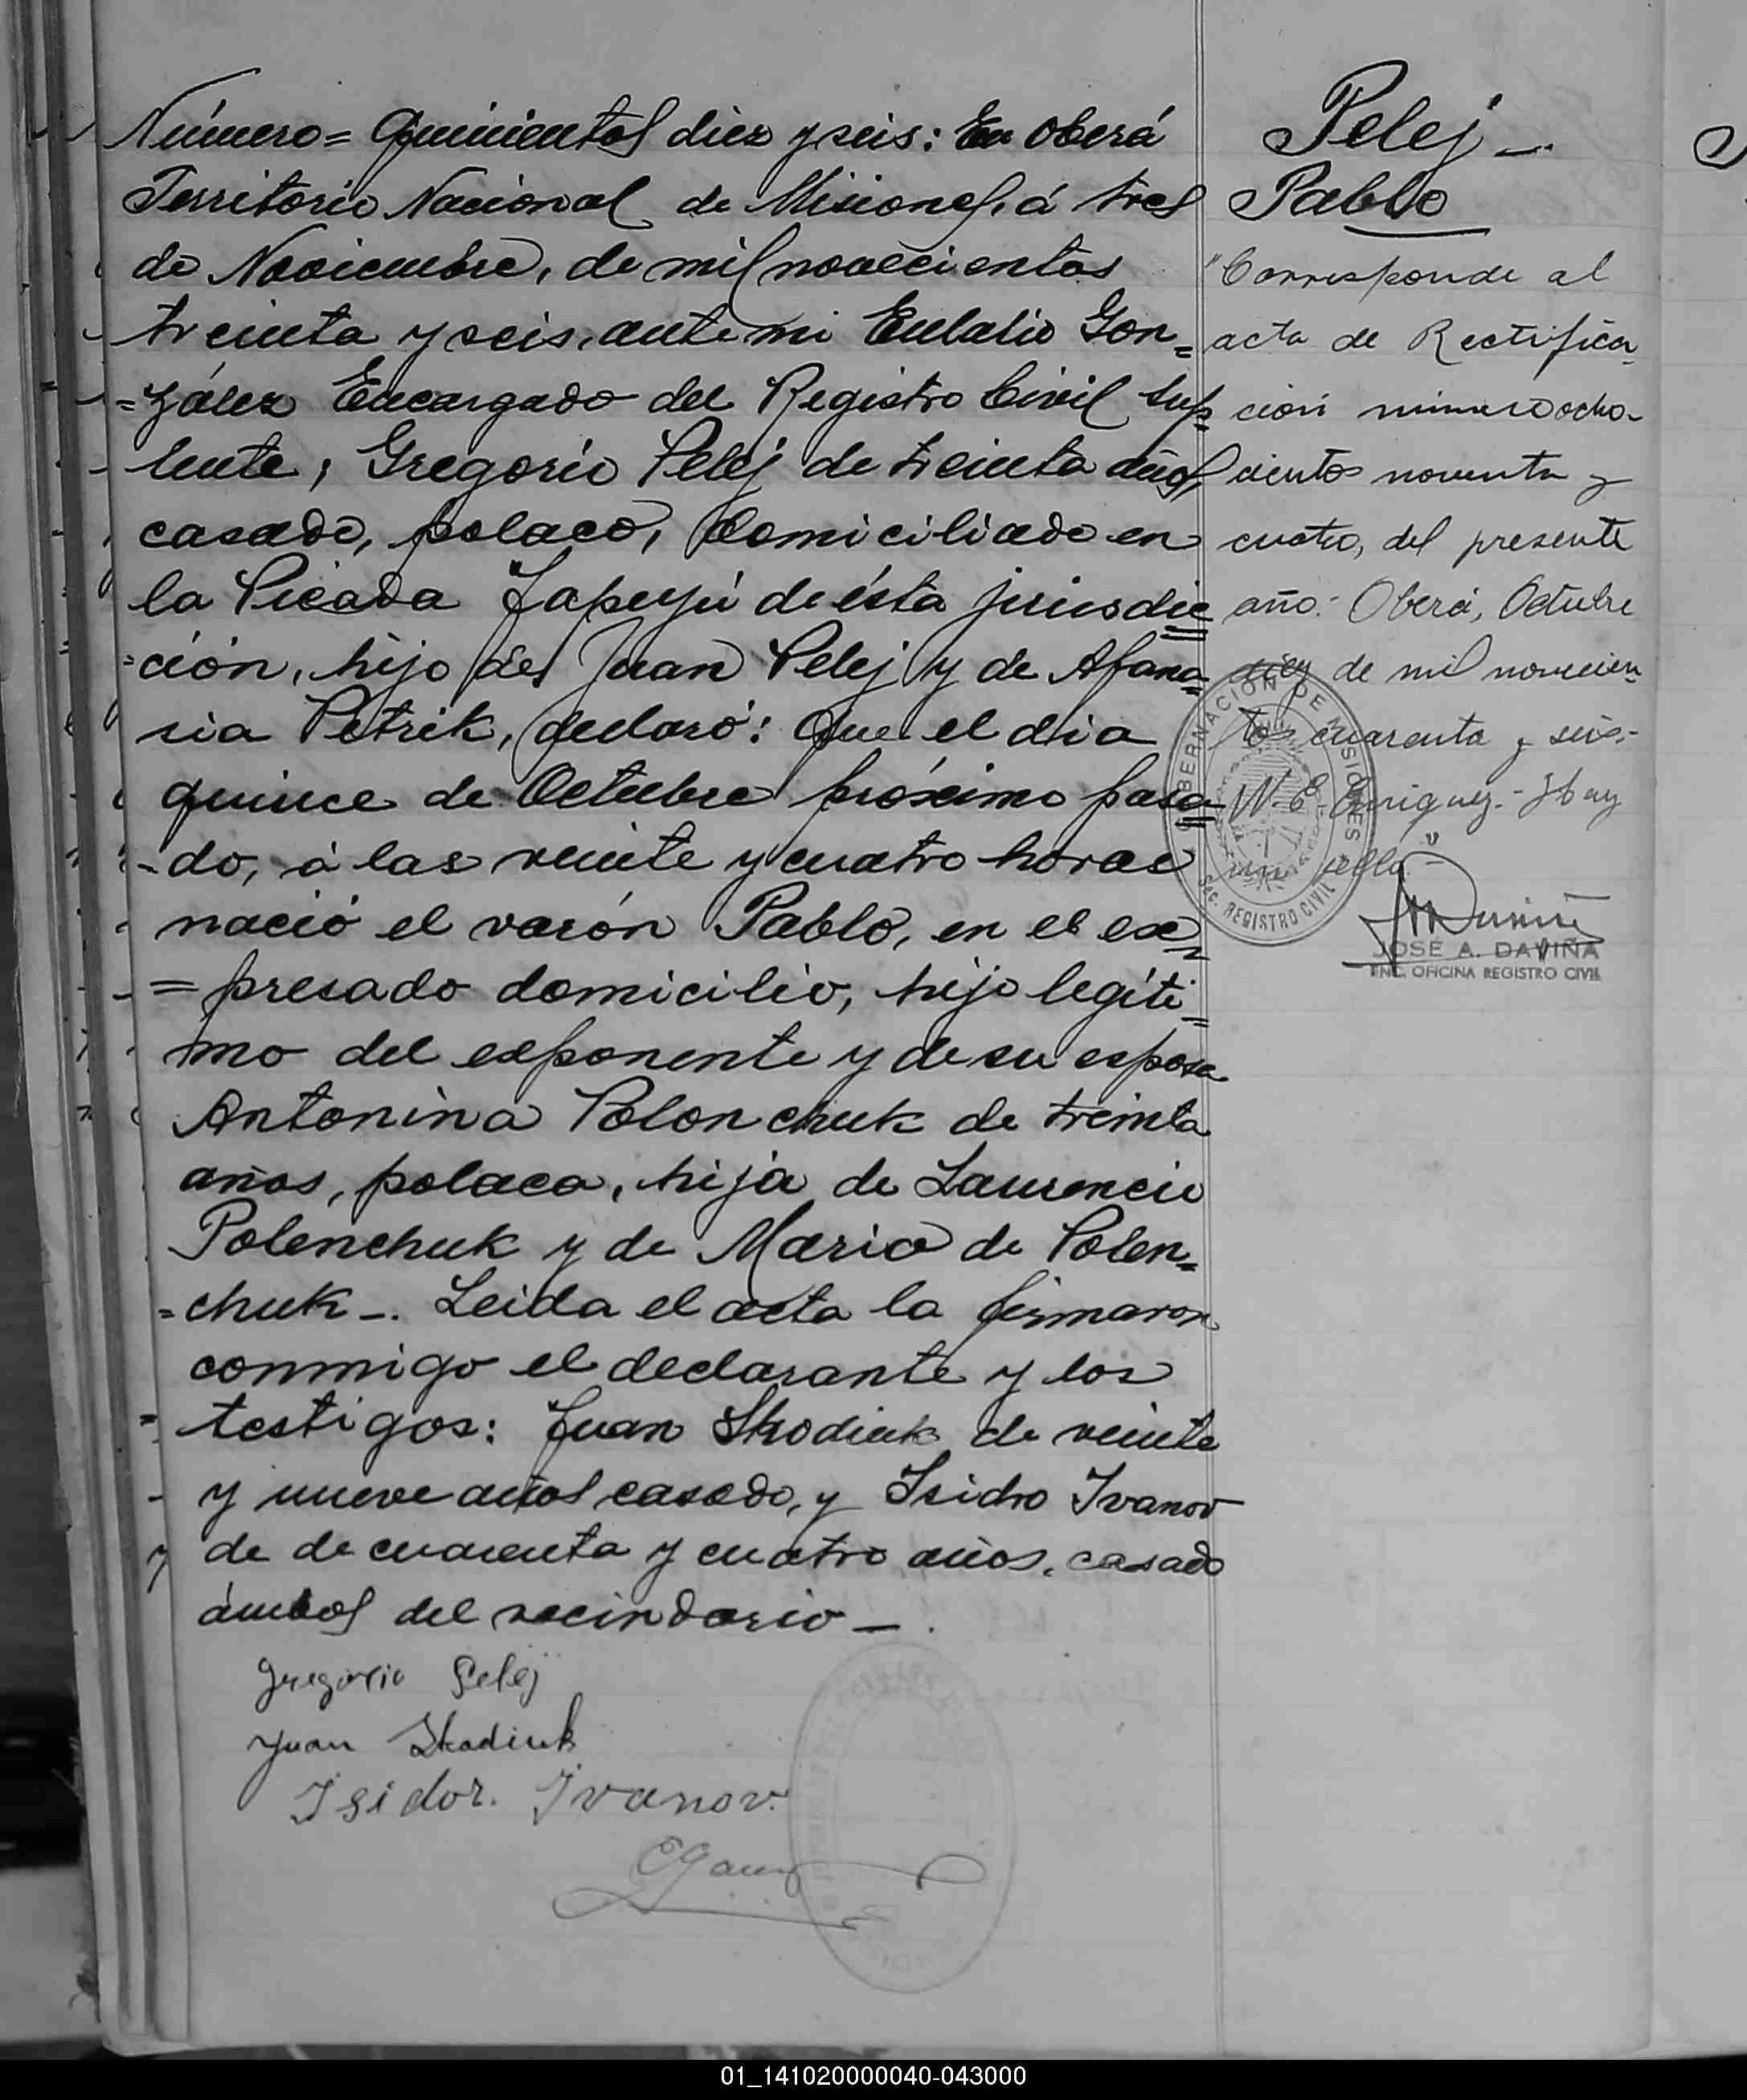 Número = Quinientos diez y seis: En Oberá
Territorio Nacional de Misiones, á tres
de Noviembre, de mil novecientos
treinta y seis, ante mi Eulalio Gon=
=zález Encargado del Registro Civil Sup=
lente, Gregorio Pelej de treinta años,
casado, polaco, domiciliado en
la Picada Yapeyú de ésta jurisdic=
=ción, hijo de Juan Pelej y de Afana=
sia Petrik, declaró: Que el dia
quince de Octubre próximo pasa=
-do, á las veinte y cuatro horas
nació el varón Pablo, en el ex=
=presado domicilio, hijo legíti=
mo del exponente y de su esposa
Antonina Polonchuk de treinta
años, polaca, hija de Laurencio
Polenchuk y de Maria de Polen=
=chuk -. Leida el acta la firmaron
conmigo el declarante y los
testigos: Juan Skodiuk de veinte
y nueve años casado, y Isidro Ivanov
de de cuarenta y cuatro años, casado
ámbos del vecindario -.
Gregorio Pelej
Juan Skodiuk
Isidor. Ivanov.
Pelej -.
Pablo
"Corresponde al
acta de Rectifica-
ción número ocho-
cientos noventa y
cuatro, del presente
año.- Oberá, Octubre
diez de mil novecien-
tos cuarenta y seis.-
N. E. Enriquez.- Hay
un sello."
GOBERNACIÓN DE MISIONES
SEC. REGISTRO CIVIL
JOSÉ A. DAVIÑA
ENC. OFICINA REGISTRO CIVIL
01_141020000040-043000